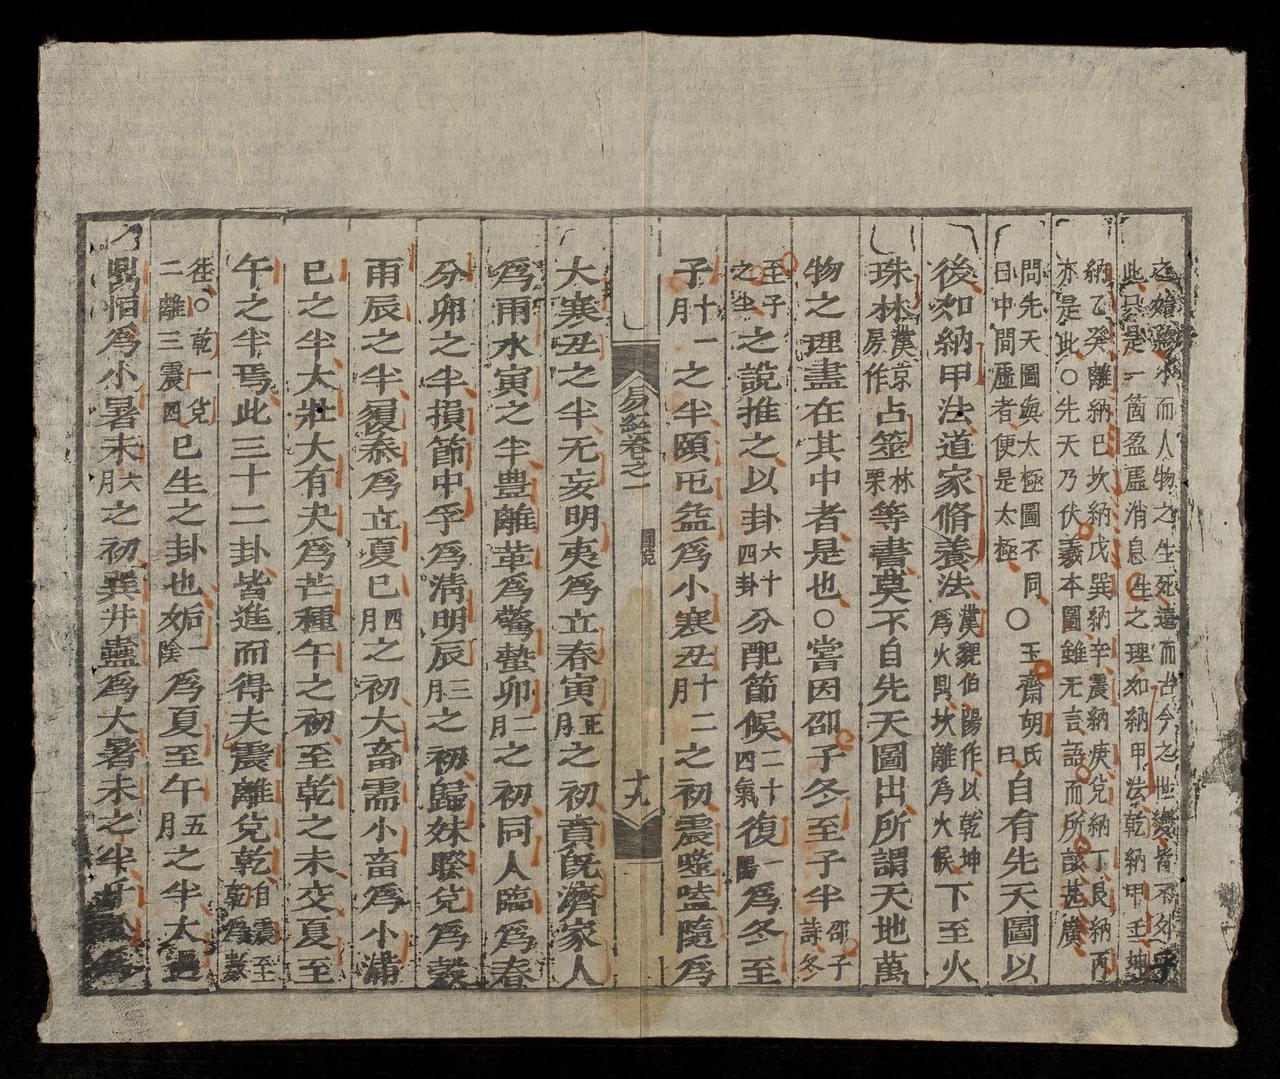 之始終小而人物之生死遠而古今之世變皆不外乎
此只是一箇盈虛消息生之理如納甲法乾納甲壬坤
納乙癸離納巳坎納戊巽納辛震納庚兌納丁艮納丙
亦是此○先天乃伏羲本圖雖无言語而所該甚廣
問先天圖與太極圖不同
曰中間虛者便是太極
○玉齋胡氏曰自有先天圖以
後如納甲法道家脩養法漢魏伯陽作以乾坤爲火與坎離爲火候下至火
珠林漢京房作占筮林栗等書莫不自先天圖出所謂天地萬
物之理盡在其中者是也○嘗因邵子冬至子半邵子詩冬
至子之半之說推之以卦六十四卦分配節候二十四氣復一陽爲冬至
子十一月之半頤屯益爲小寒丑十二月之初震噬嗑隨爲
易經卷之一 圖說 十九
大寒丑之半无妄明夷爲立春寅正月之初賁旣濟家人
爲雨水寅之半豊離革爲驚蟄卯二月之初同人臨爲春
分卯之半損節中孚爲清明辰三月之初歸妹睽兌爲穀
雨辰之半履泰爲立夏巳四月之初大畜需小畜爲小滿
巳之半大壯大有夬爲芒種午之初至乾之未交夏至
午之半焉此三十二卦皆進而得夫震離兌乾自震至乾爲數
徃○乾一兌二離三震四巳生之卦也姤一陰爲夏至午五月之半大過
鼎恒爲小暑未六月之初巽井蠱爲大暑未之半升訟爲